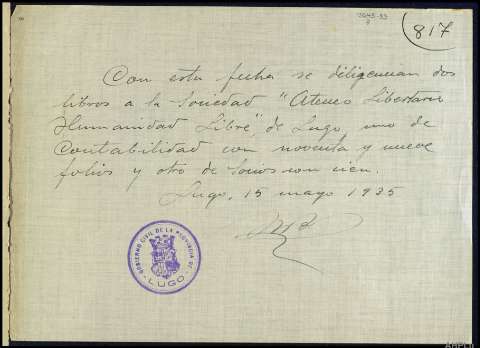 817
Con esta fecha se diligencian dos
libros a la Sociedad "Ateneo Libertario
Humanidad Libre", de Lugo, uno de
Contabilidad con noventa y nueve
folios y otro de Socios con cien.
Lugo, 15 mayo 1935
GOBIERNO CIVIL DE LA PROVINCIA DE
- LUGO -